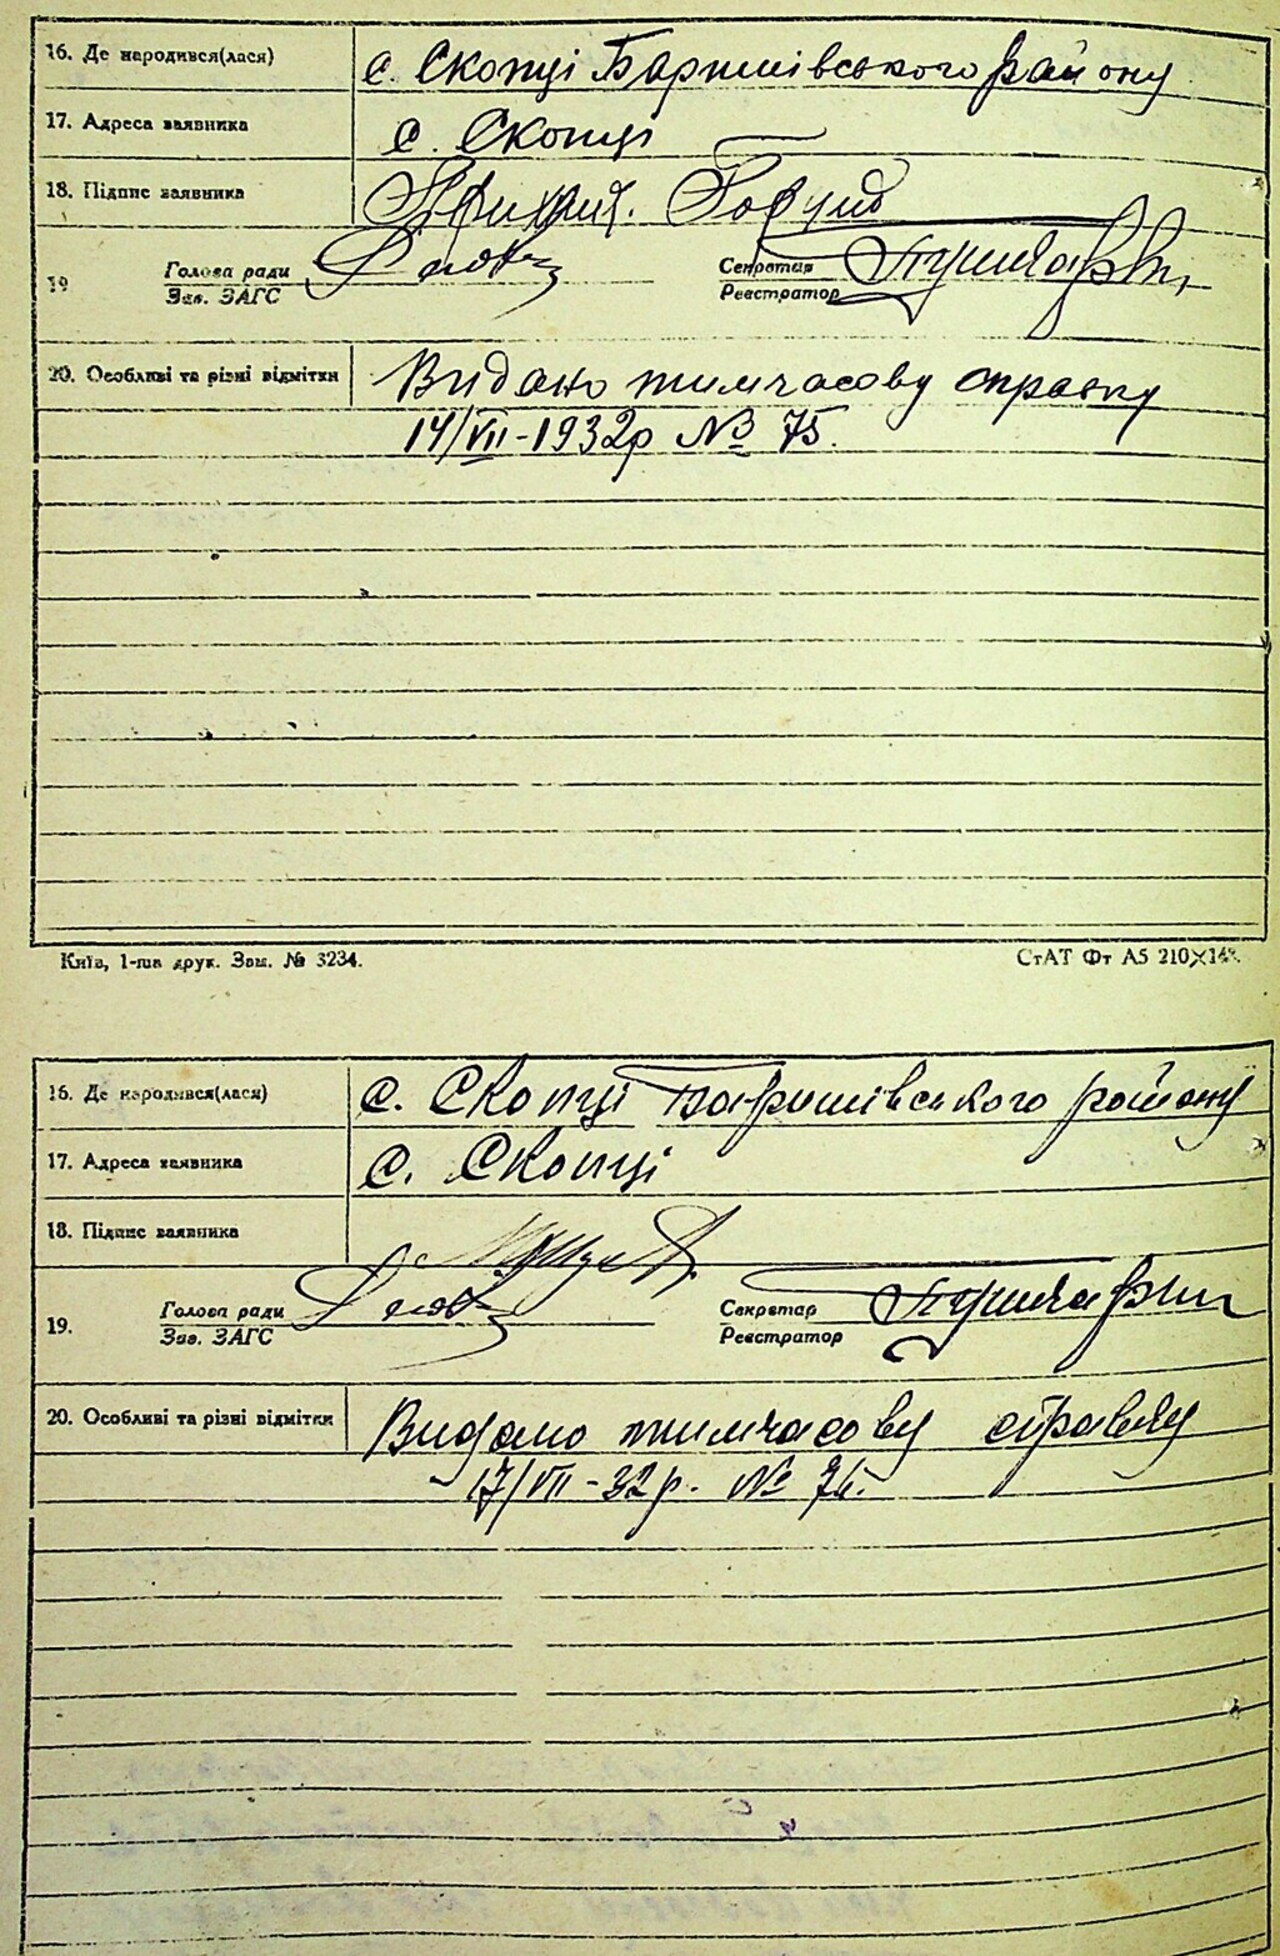 16. Де народився(лася) с. Скопці Баришівського району
17. Адреса заявника с. Скопці
18. Підпис заявника
19 Голова ради Секретар
Зав. ЗАГС Реєстратор
20. Особливі та різні відмітки Видано тимчасову справку
14/VII-1932р № 75.
Київ, 1-ша друк. Зам. № 3234. СтАТ Фт А5 210×148.
16. Де народився(лася) с. Скопці Баришівського району
17. Адреса заявника с. Скопці
18. Підпис заявника
19. Голова ради Секретар
Зав. ЗАГС Реєстратор
20. Особливі та різні відмітки Видано тимчасову справку
17/VII-32р. № 76.